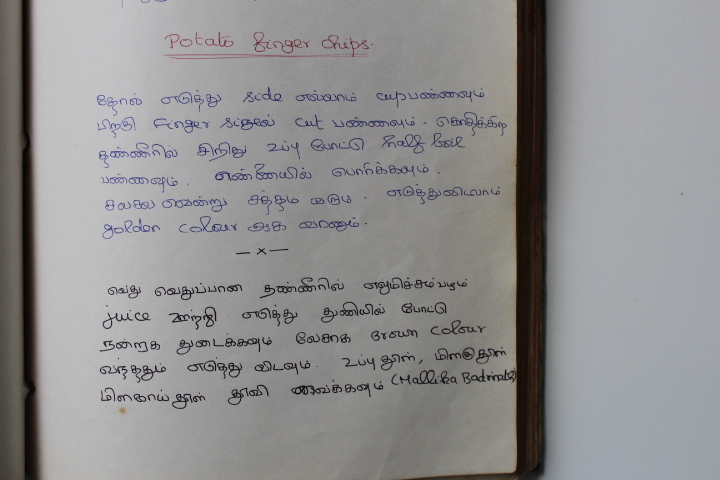 Potato finger chips.
தோல் எடுத்து side எல்லாம் cut பண்ணவும்
பிறகு Finger sizeல் cut பண்ணவும். கொதிக்கிற
தண்ணீரில் சிறிது உப்பு போட்டு half boil
பண்ணவும். எண்ணையில் பொரிக்கவும்.
சலசலவென்று சத்தம் வரும. எடுத்துவிடலாம்
golden colour ஆக வரணும்.
—x—
வெது வெதுப்பான தண்ணீரில் எலுமிச்சம்பழம்
juice ஊற்றி எடுத்து துணியில் போட்டு
நன்றாக துடைக்கவும் லேசாக Brown colour
வந்ததும் எடுத்து விடவும். உப்பு தூள், மிளகு தூள்
மிளகாய் தூள் தூவி வைக்கவும் (Mallika Badrinath)